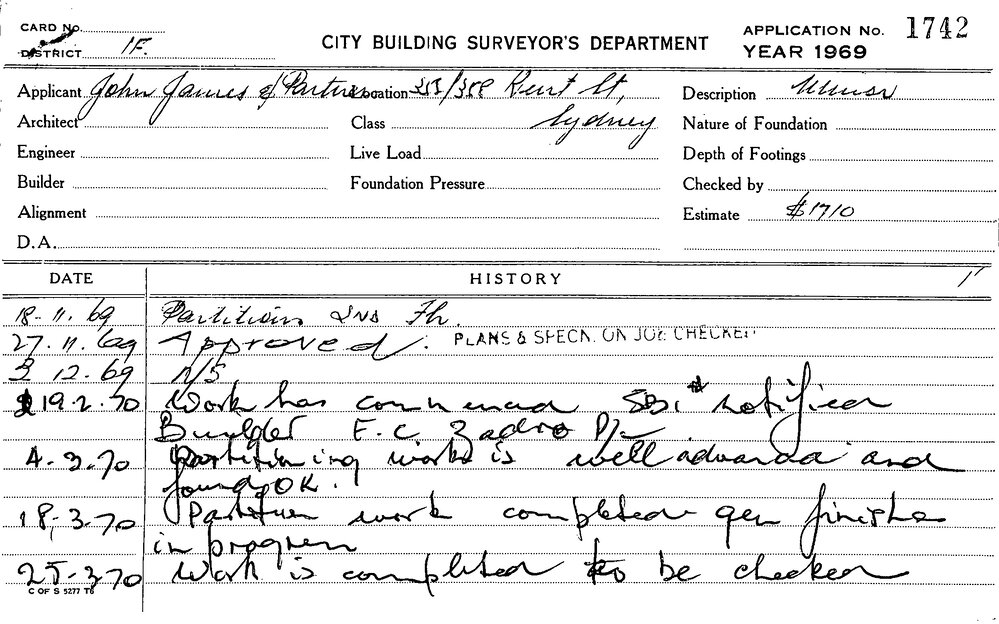 CARD No.
DISTRICT 1F.
CITY BUILDING SURVEYOR'S DEPARTMENT
APPLICATION No. 1742
YEAR 1969
Applicant John James & Partners Location 383/388 Kent St, Sydney
Description Minor
Architect
Class
Nature of Foundation
Engineer
Live Load
Depth of Footings
Builder
Foundation Pressure
Checked by
Alignment
Estimate $1710
D.A.
DATE HISTORY
18-11.69 Partitions 2nd Flr.
27.11.69 Approved. PLANS & SPECN. ON JOB CHECKED
3 12.69 N/S
19.2.70 Work has commenced SBI notified
Builder E.C. Zadro P/L
4.3.70 Partitioning works is well advanced and
found OK.
18-3-70 Partition work completed gen finishes
in progress
25-3-70 Work is completed to be checked
C OF S 5277 T6